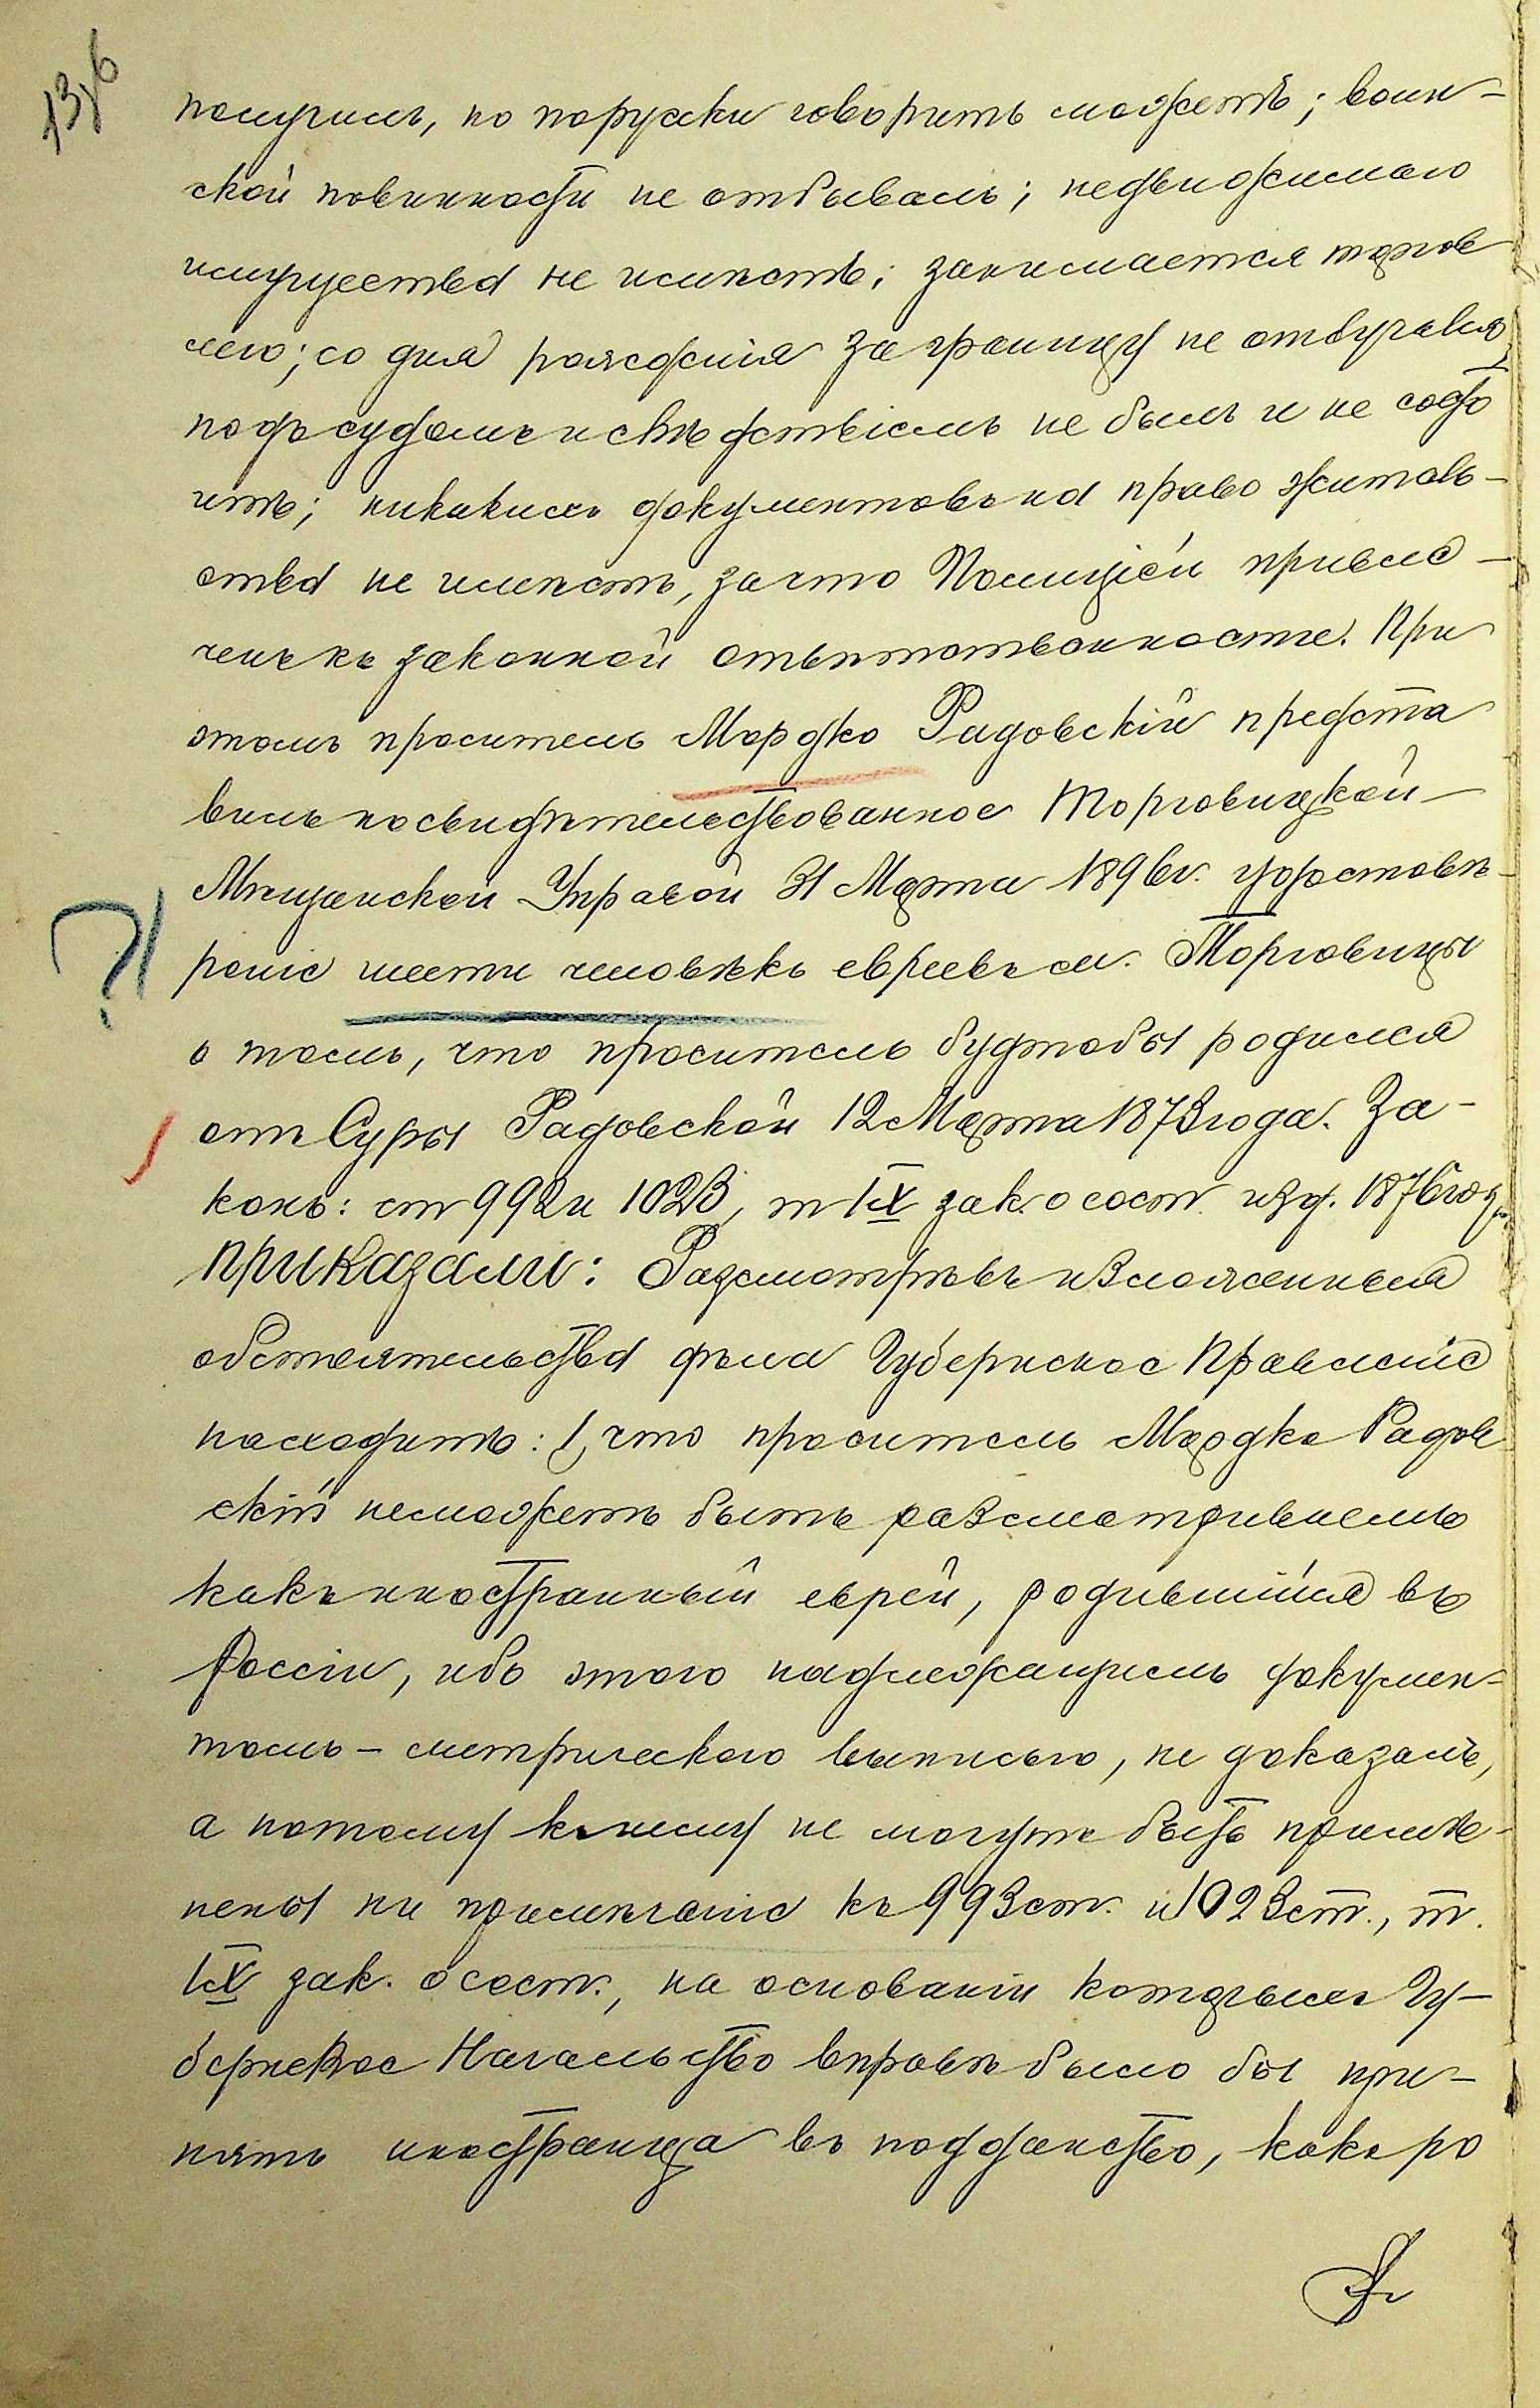 получилъ, но порусски говорить можетъ; воин-
ской повинности не отбывалъ; недвижимаго
имущества не имѣетъ; занимается торгов
лею; со дня рожденія за границу не отлучался,
подъ судомъ и слѣдствіемъ не былъ и не состо
итъ; никакихъ документовъ на право житель-
ства не имѣетъ, за что Полиціей привле-
ченъ къ законной отвѣтственности. При
этомъ проситель Мордко Радовскій предста
вилъ посвидѣтельствованное Торговицкой
Мѣщанской Управой 31 Марта 1896 г. удостовѣ-
реніе шести человѣкъ евреевъ м. Торговицы
о томъ, что проситель будтобы родился
отъ Суры Радовской 12 Марта 1873 года. За-
конъ: ст 992 и 1023, т IX зак. о сост. изд. 1876 год.
Приказали: Разсмотрѣвъ изложенныя
обстоятельства дѣла Губернское Правленіе
находитъ: 1, что проситель Мордко Радов
скій неможетъ быть разсматриваемъ
какъ иностранный еврей, родившійся въ
Россіи, ибо этого надлежащимъ докумен-
томъ - метрическою выписью, не доказалъ,
а потому къ нему не могутъ быть примѣ-
нены ни примѣчаніе къ 993 ст. и 1023 ст., т.
IX зак. о сост., на основаніи которыхъ Гу-
бернское Начальство вправѣ было бы при-
нять иностранца въ подданство, какъ ро